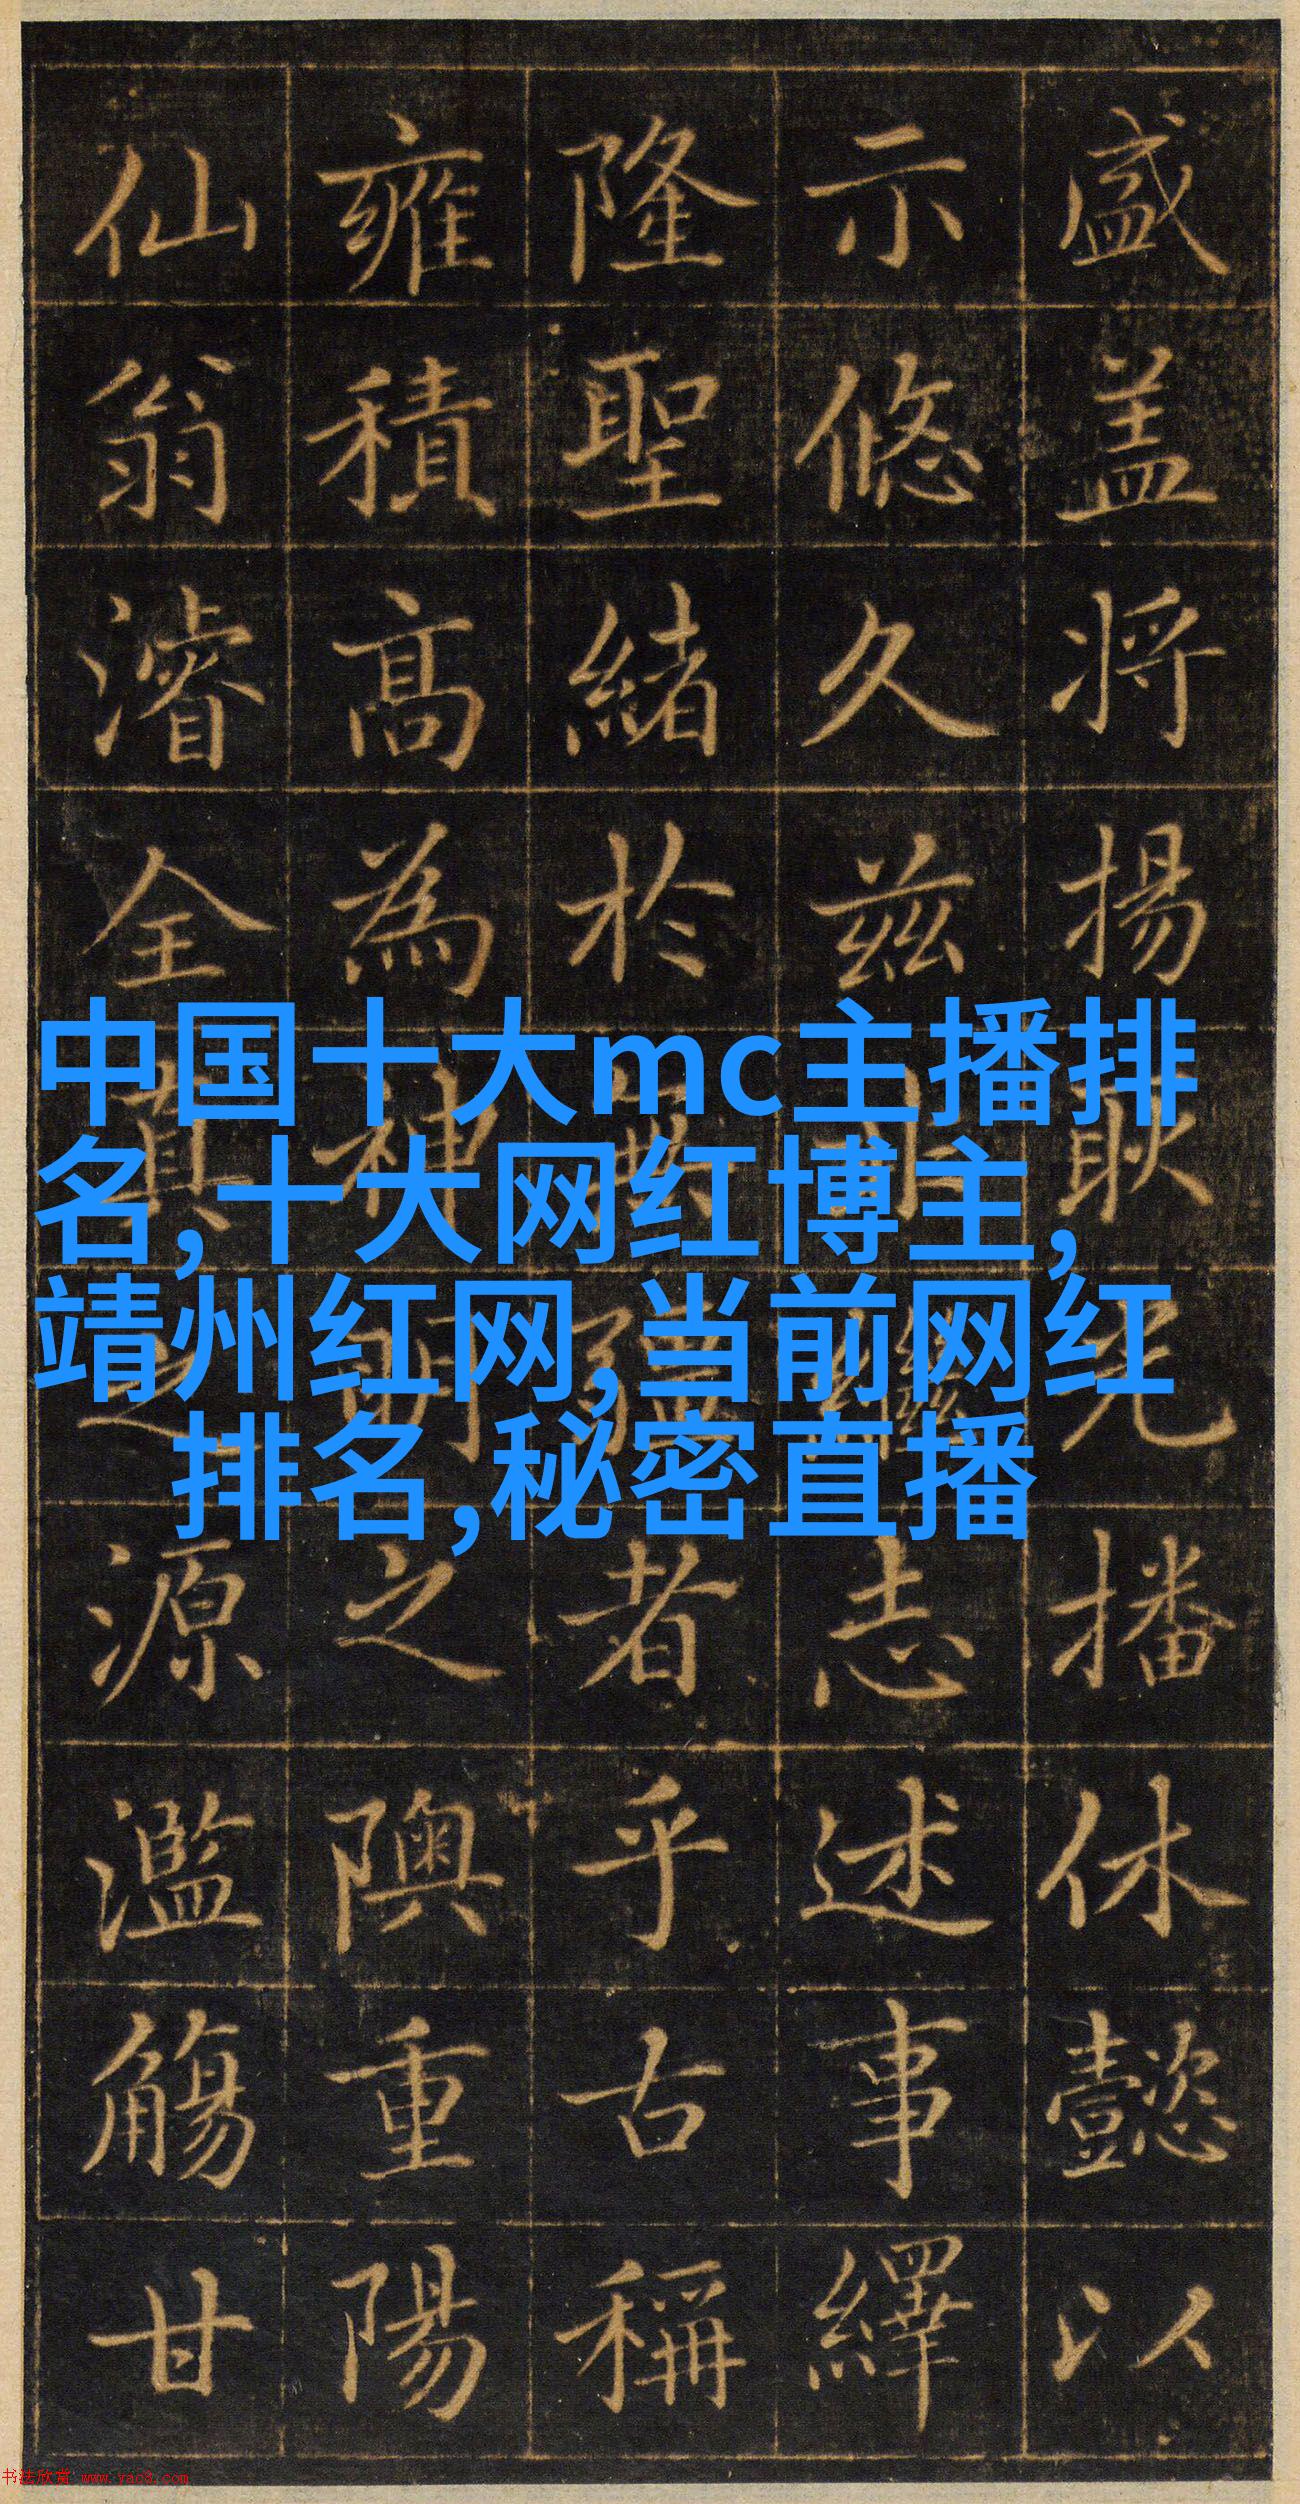 盛盖将揚耿光播休懿以
示悠久兹繼志述事繹
隆聖緒於無疆者乎古稱
雍積高為神明之隩重陽
仙翁濬全真之源濫觴甘
中国十大mc主播排
名,十大网红博主,
靖州红网,当前网红
排名,秘密直播
书法欣赏 www.yac8.com